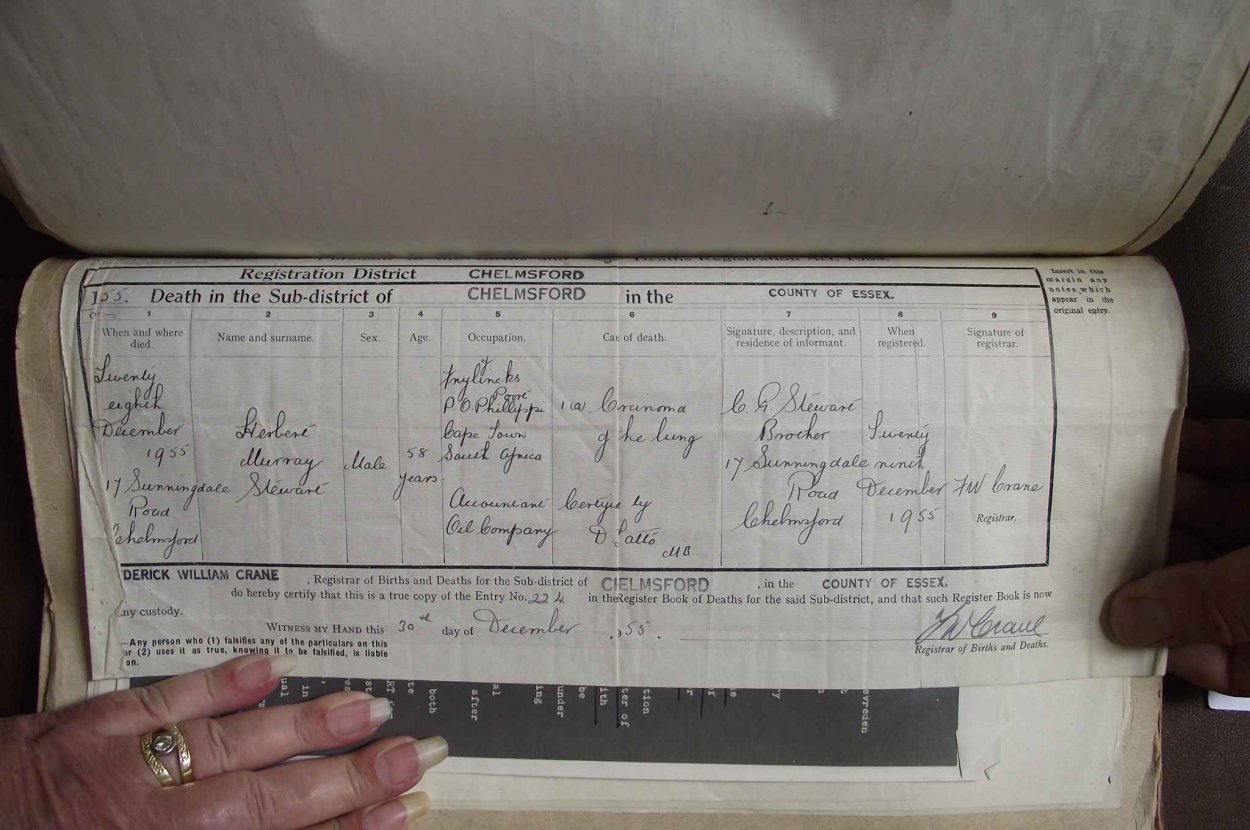 Deaths Registration Act,
Registration District CHELMSFORD
155. Death in the Sub-district of CHELMSFORD in the COUNTY OF ESSEX.
Insert in this
margin any
notes which
appear in the
original entry.
1 2 3 4 5 6 7 8 9
When and where
died.
Name and surname.
Sex.
Age.
Occupation.
Cau of death.
Signature, description, and
residence of informant.
When
registered.
Signature of
registrar.
Twenty
eighth
December
1955
17 Sunningdale
Road
Chelmsford
Herbert
Murray
Stewart
Male
58
years
of
P.O. Phillippi
Cape Town
South Africa
Accountant
Oil Company
1 (a) Carcinoma
of the lung
Certified by
D. Latto
MB
C. G. Stewart
Brother
17 Sunningdale
Road
Chelmsford
Twenty
ninth
December
1955
F W Crane
Registrar.
DERICK WILLIAM CRANE , Registrar of Births and Deaths for the Sub-district of CHELMSFORD , in the COUNTY OF ESSEX.
do hereby certify that this is a true copy of the Entry No. 224 in the Register Book of Deaths for the said Sub-district, and that such Register Book is now
my custody.
WITNESS MY HAND this 30th day of December , 1955.
F W Crane
Registrar of Births and Deaths.
—Any person who (1) falsifies any of the particulars on this
or (2) uses it as true, knowing it to be falsified, is liable
on.
both
after
ing
under
be
ith
ter of
tion
evreden